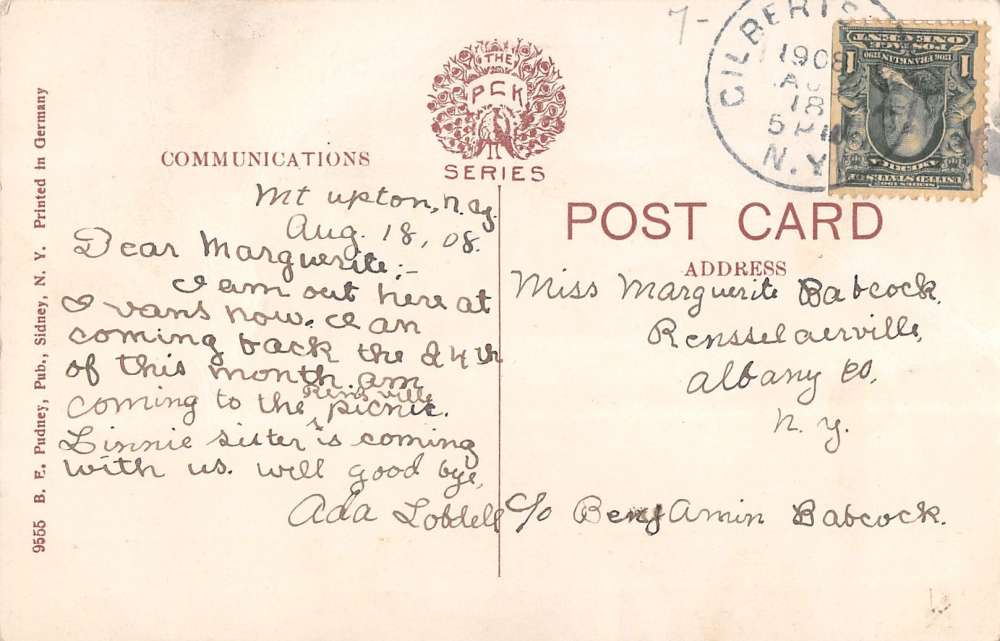 7-
GILBERTS
1908
AUG
18
5 PM
N.Y.
ONE CENT
POSTAGE
1706 FRANKLIN 1790
1 1
SERIES 1902
UNITED STATES OF AMERICA
THE
PCK
SERIES
COMMUNICATIONS
POST CARD
ADDRESS
Mt upton, n.y.
Aug. 18, 08.
Dear Marguerite:-
I am out here at
Ivans now. I an
coming back the 24th
of this month am
coming to the Rens.ville picnic.
Linnie sister is coming
with us. will good bye,
Ada Lobdell
Miss Marguerite Babcock,
Rensselaerville,
Albany Co,
n. y.
c/o Benjamin Babcock.
9555 B. E. Pudney, Pub., Sidney, N. Y. Printed in Germany